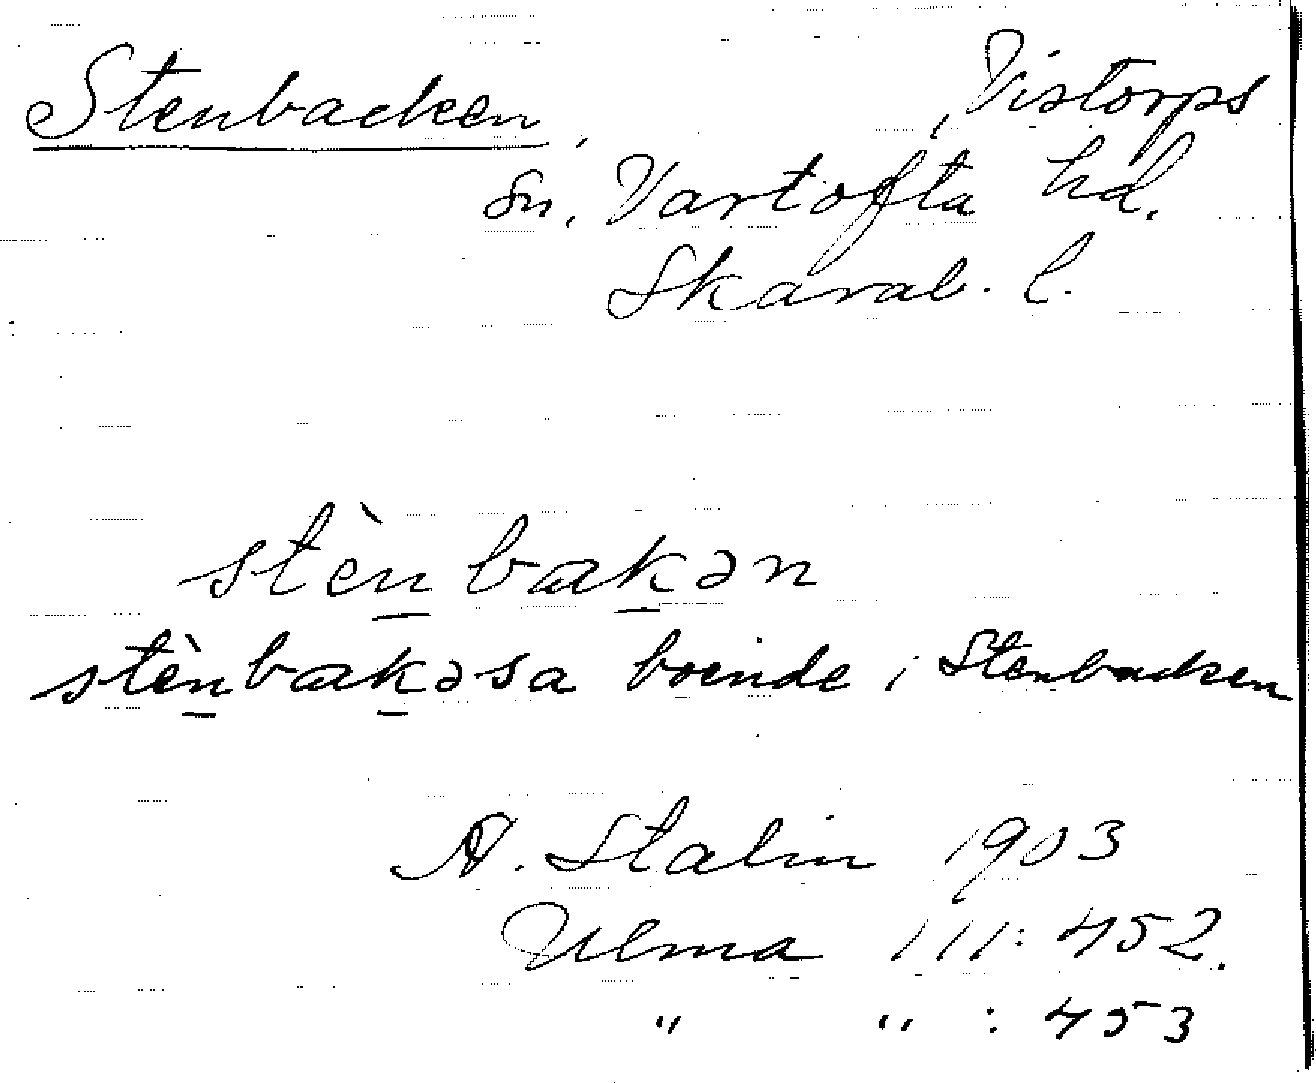 Stenbacken, Vistorps
sn, Vartofta hd.
Skarab. l.
stèn̲bak̲ən
stèn̲bak̲əsa boende i Stenbacken
A. Stalin 1903
Ulma 111: 452.
" " : 453